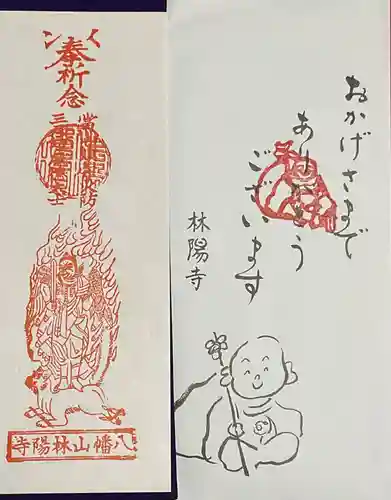 奉祈念
八幡山林陽寺
おかげさまで
ありがとう
ございます
林陽寺